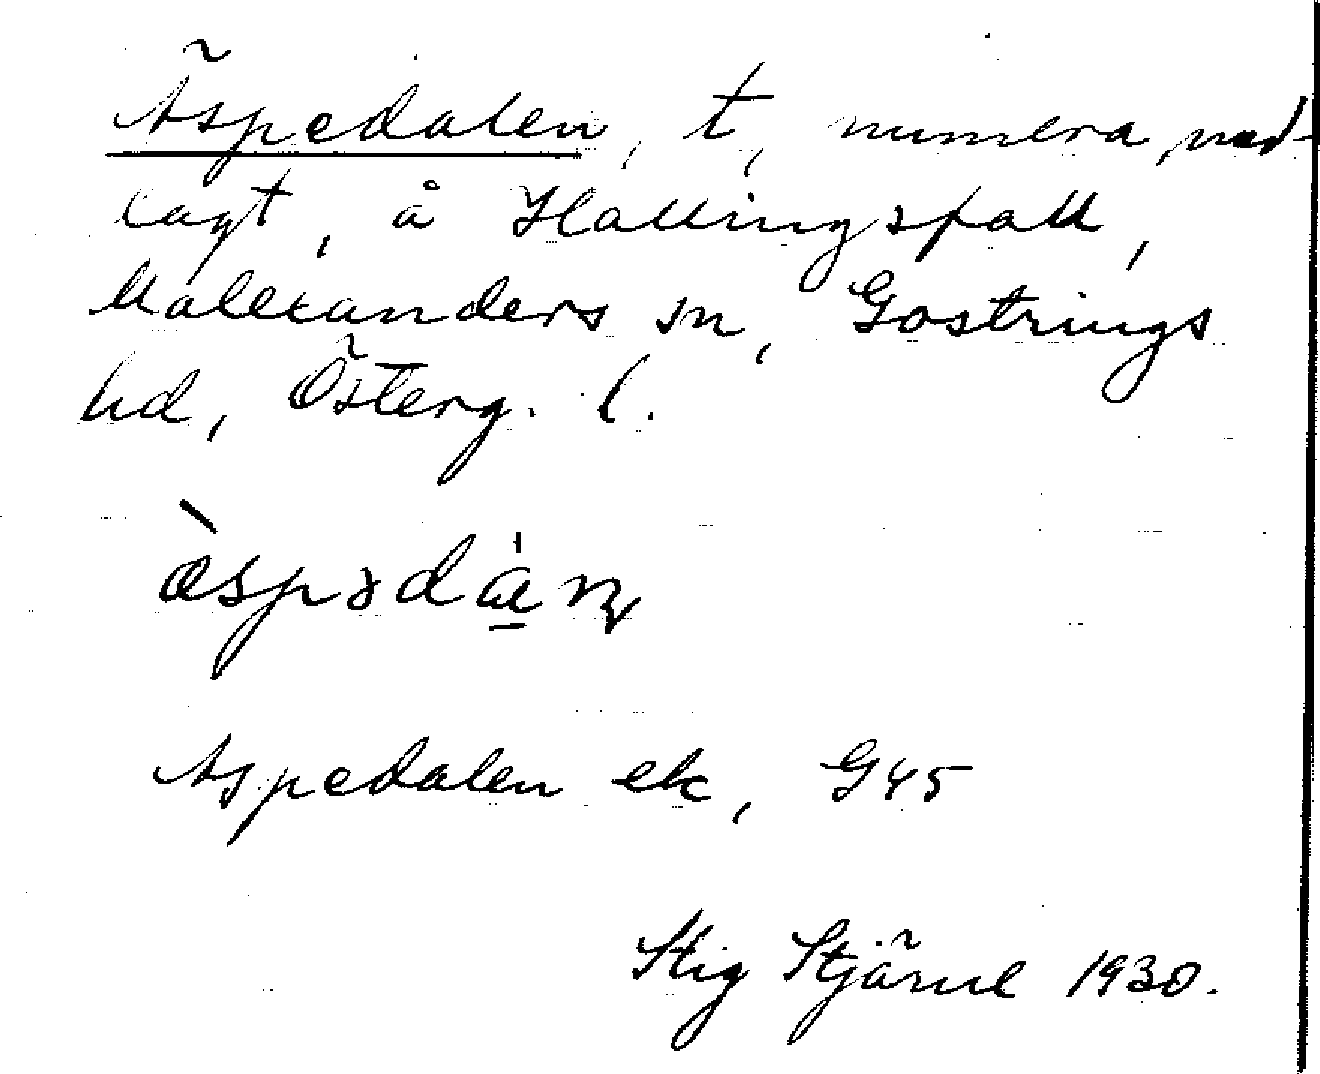 Äspedalen, t, numera ned-
lagt, å Hallingsfall,
Malexanders sn, Göstrings
hd, Österg. l.
Aspedalen ek, G45
Stig Stjärne 1930.